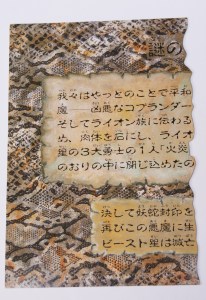 謎の
我々はやっとのことで平和
魔――凶悪なコブランダー
そしてライオン族に伝わる
め、肉体を石にし、ライオ
星の3大勇士の1人「火炎
のおりの中に閉じ込めたの
決して妖蛇封印を
再びこの悪魔に生
ビースト星は滅亡